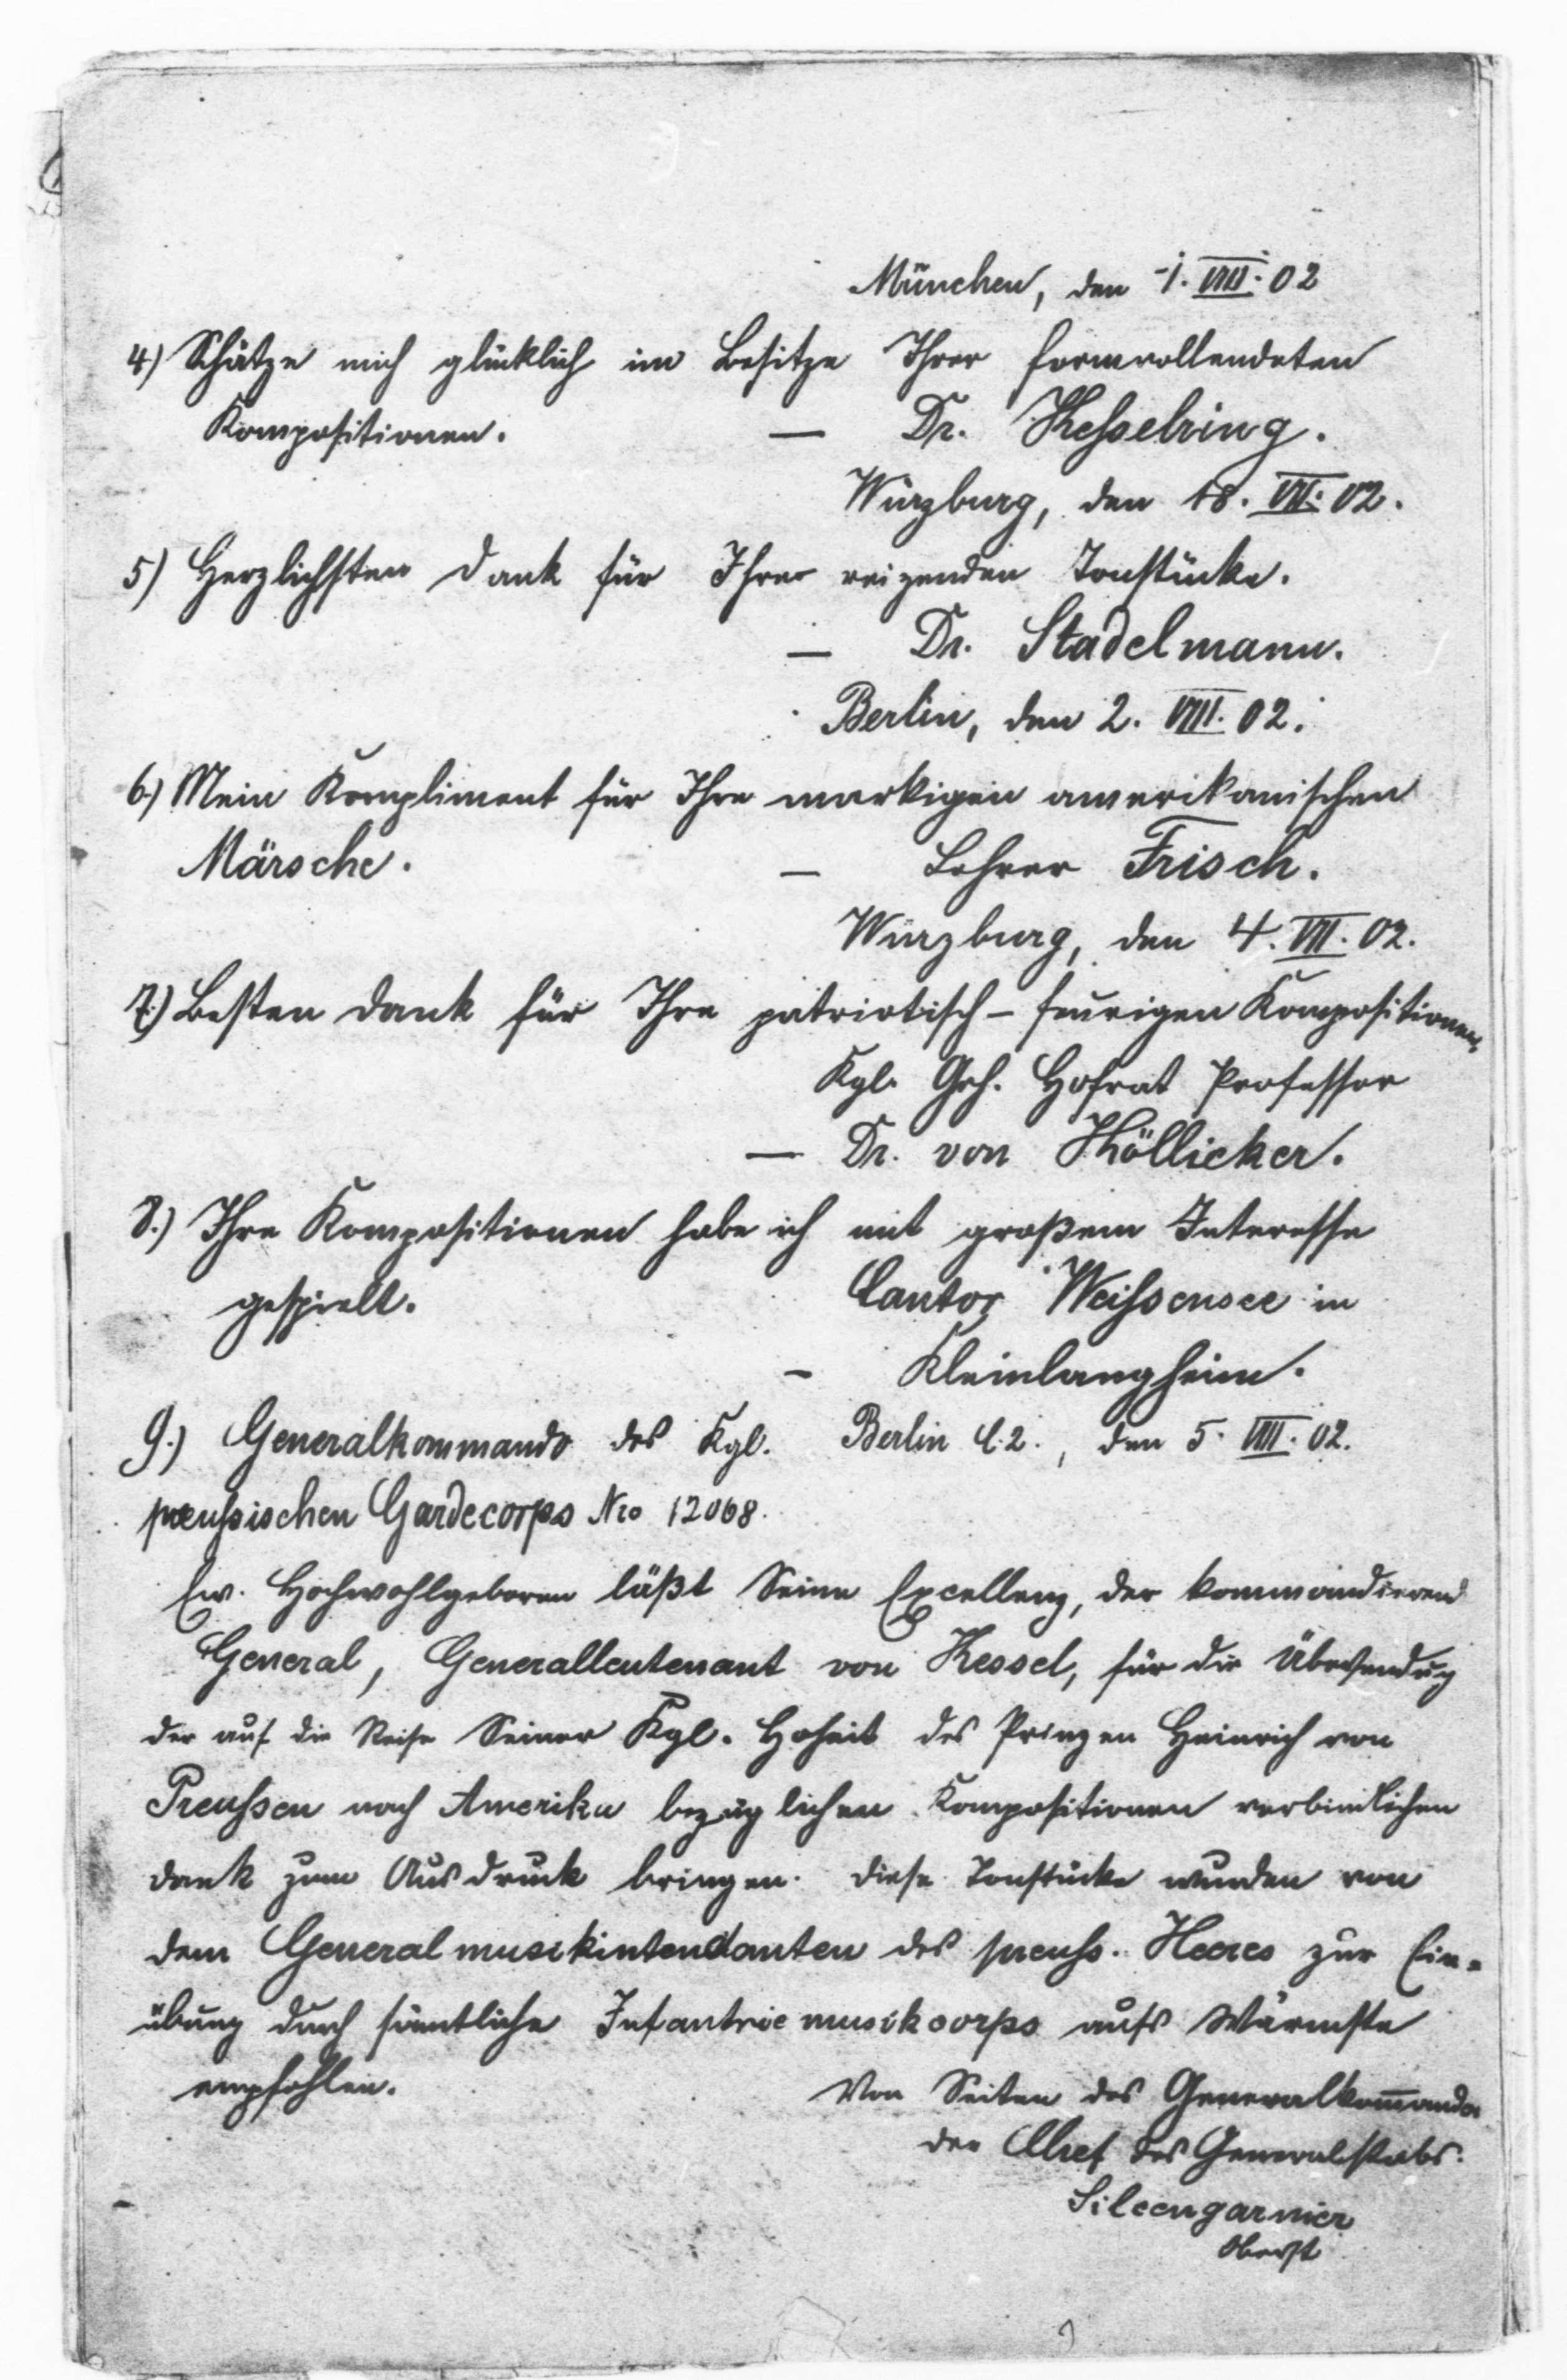 München, den 1. VIII. 02
4.) Schätze mich glücklich im Besitze Ihrer formvollendeten
Kompositionen. — Dr. Kesselring.
Würzburg, den 18. VII. 02.
5) Herzlichsten Dank für Ihre reizenden Tonstücke.
— Dr. Stadelmann.
Berlin, den 2. VIII. 02.
6.) Mein Kompliment für Ihre markigen amerikanischen
Märsche. — Lehrer Frisch.
Würzburg, den 4. VII. 02.
7.) Besten Dank für Ihre patriotisch-feurigen Kompositionen,
Kgl. Geh. Hofrat Professor
— Dr. von Köllicker.
8.) Ihre Kompositionen habe ich mit großem Interesse
gespielt. Cantor Weissensee in
— Kleinlangheim.
9.) Generalkommando des Kgl. Berlin C.2., den 5. VIII. 02.
preussischen Gardecorps Nro 12068.
Ew. Hochwohlgeboren läßt Seine Excellenz, der kommandierend
General, Generalleutenant von Kessel, für die Übersendung
der auf die Reise Seiner Kgl. Hoheit des Prinzen Heinrich von
Preussen nach Amerika bezüglichen Kompositionen verbindlichen
Dank zum Ausdruck bringen. Diese Tonstücke wurden von
dem Generalmusikintendanten des preuss. Heeres zur Ein-
übung durch sämtliche Infantriemusikcorps aufs Wärmste
empfohlen. Von Seiten des Generalkom̄ando
der Chef des Generalstabs.
Oberst